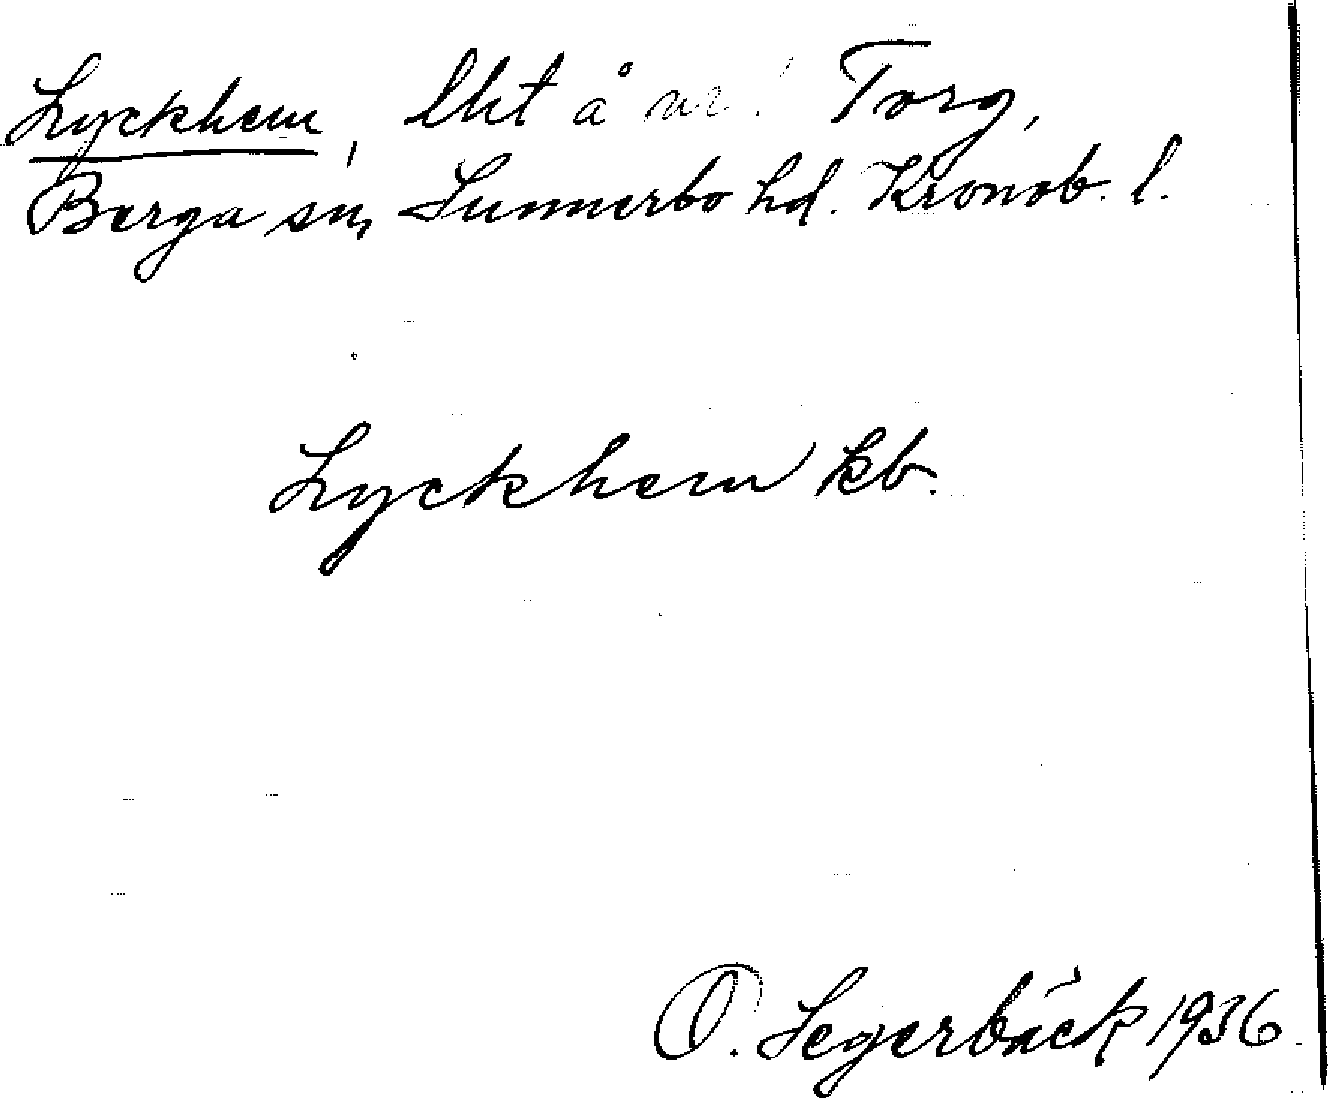 Lyckhem, lht å nr 1 Torg,
Berga sn, Sunnerbo hd. Kronob. l.
Lyckhem kb.
O. Segerbäck 1936